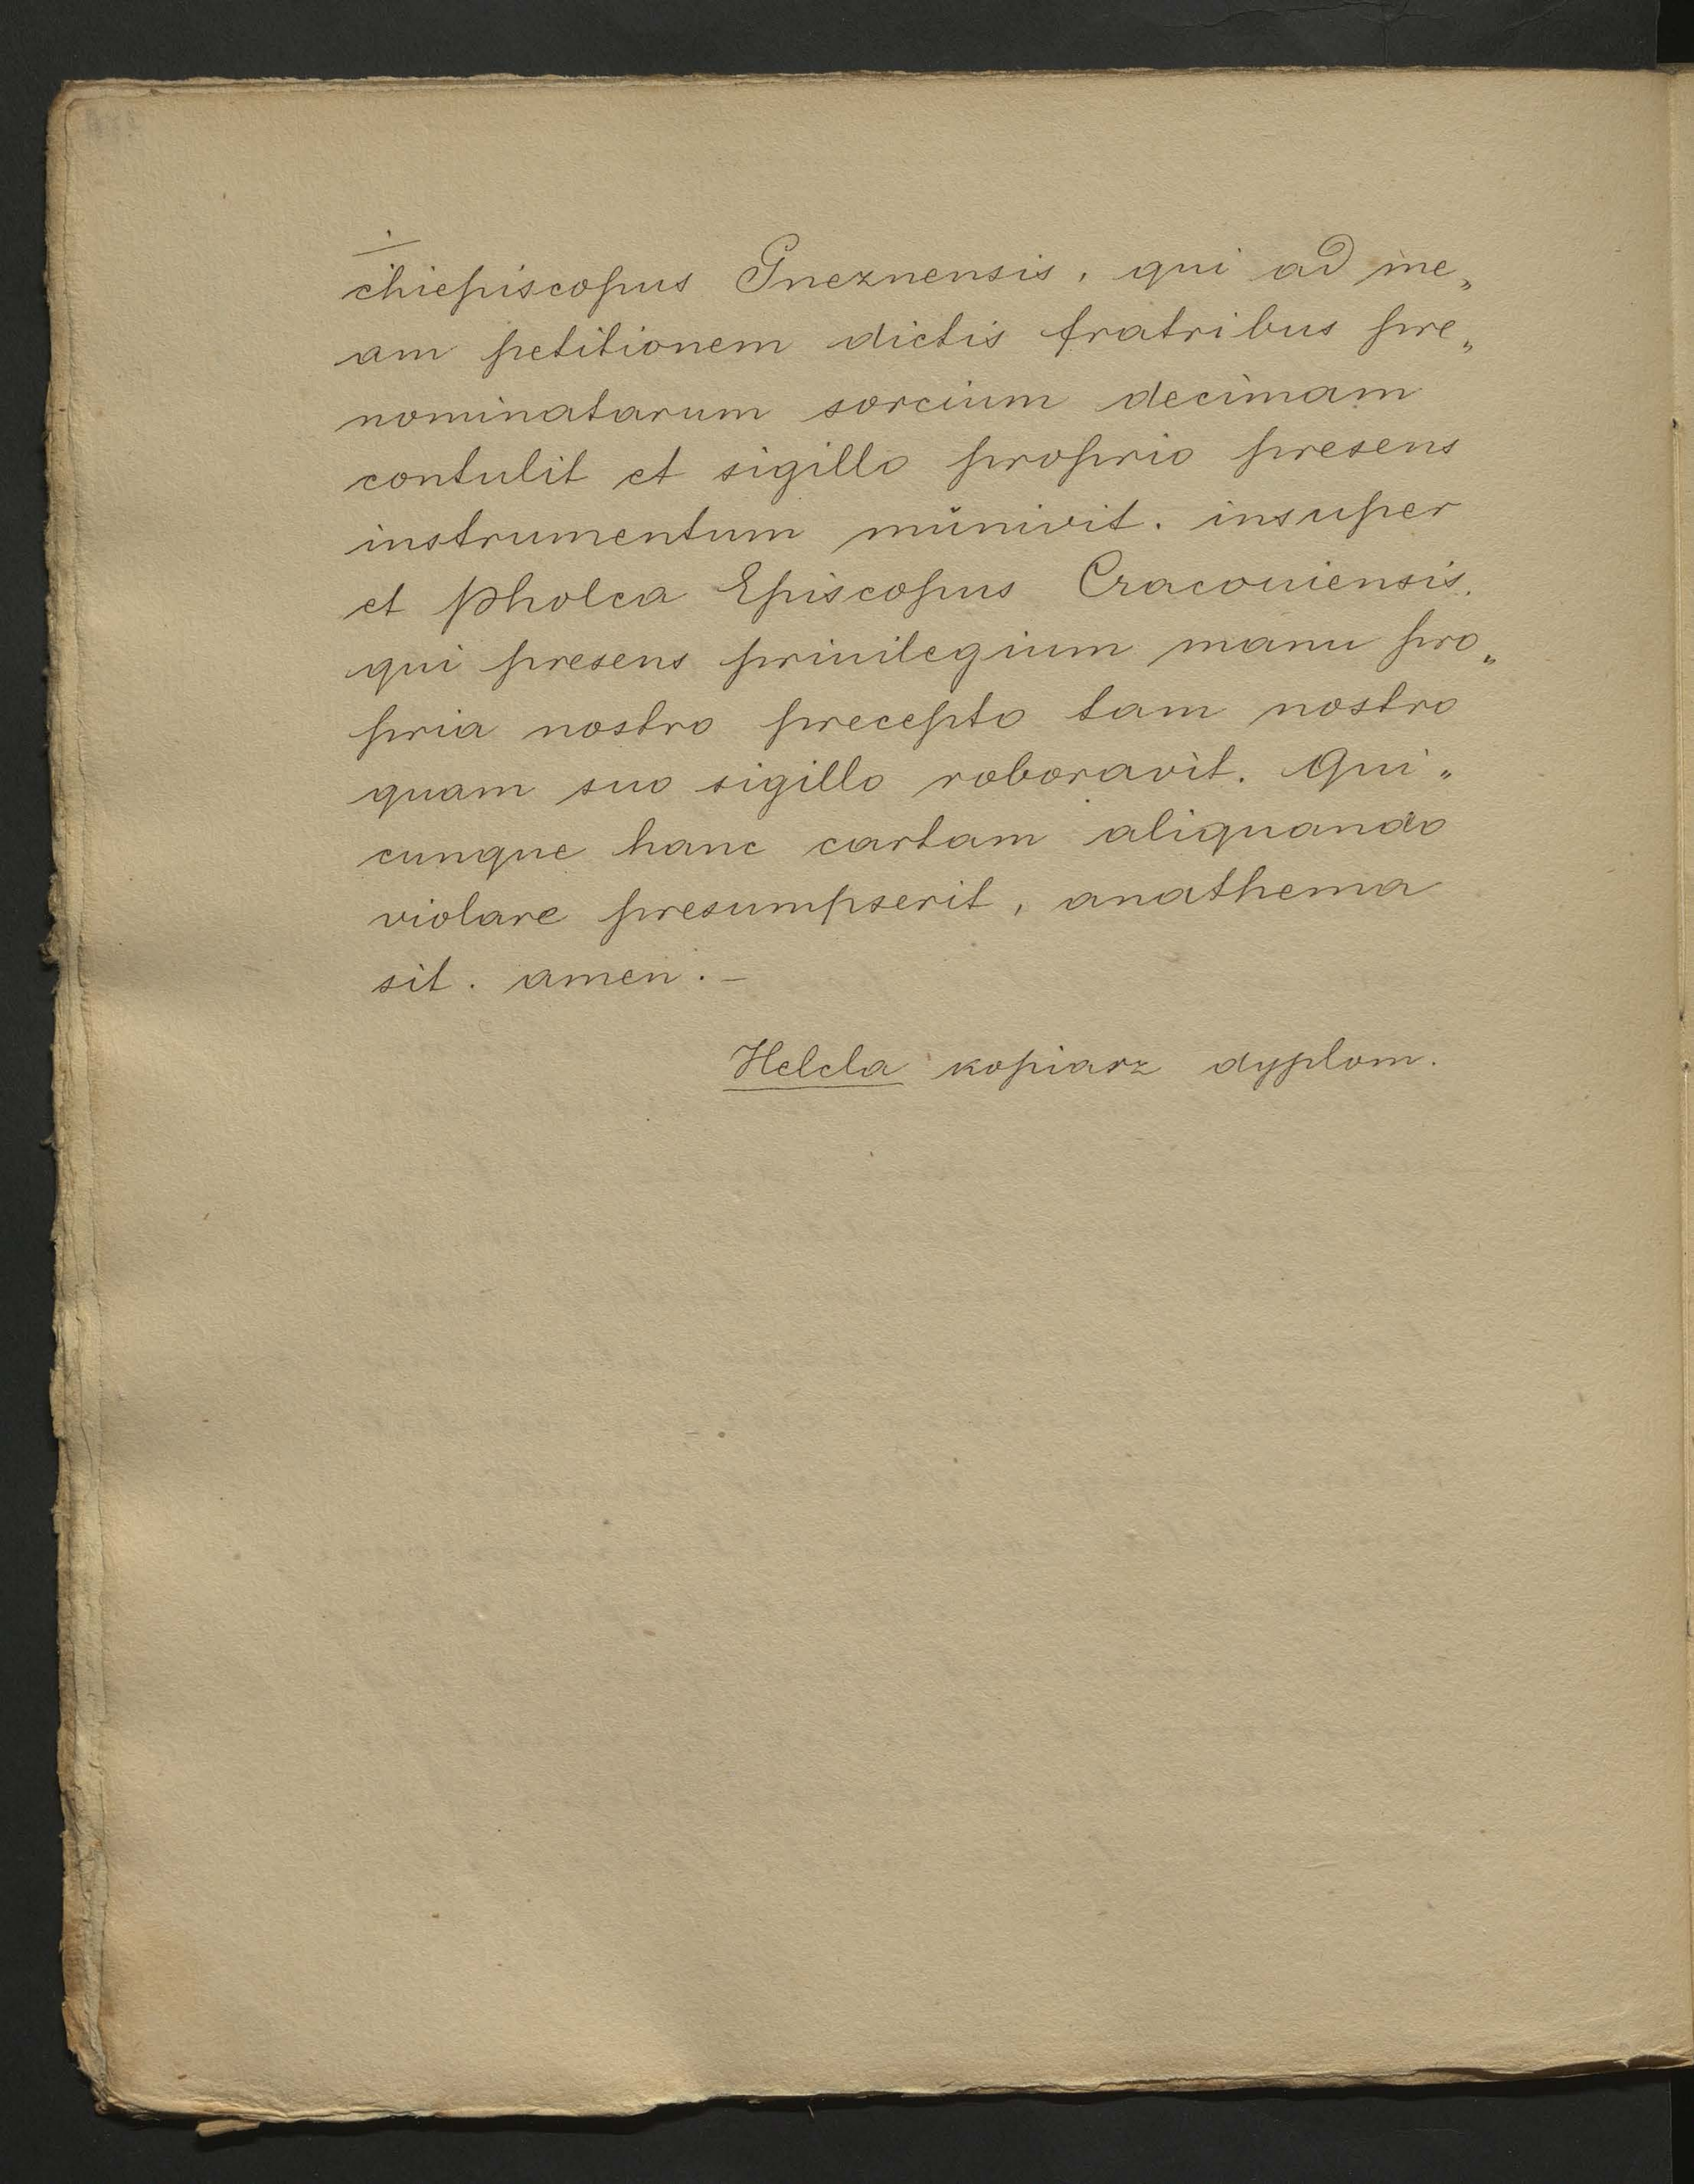 chiepiscopus Gneznensis, qui ad me„
am petitionem dictis fratribus pre„
nominatarum sorcium decimam
contulit et sigillo proprio presens
instrumentum munivit. insuper
et Pholca Episcopus Cracouiensis.
qui presens priuilegium manu pro„
pria nostro precepto tam nostro
quam suo sigillo roboravit. Qui„
cunque hanc cartam aliquando
violare presumpserit, anathema
sit. amen. –
Helcla kopiarz dyplom.